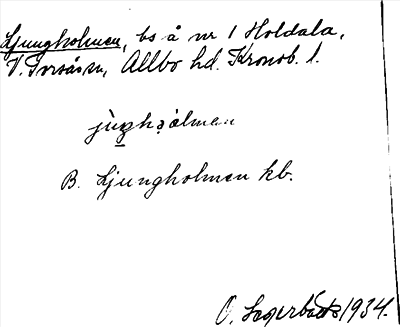 Ljungholmen, bs å nr 1 Holdala,
V. Torsås sn, Allbo hd. Kronob. l.
B. Ljungholmen kb.
O. Lagerbäck 1934.